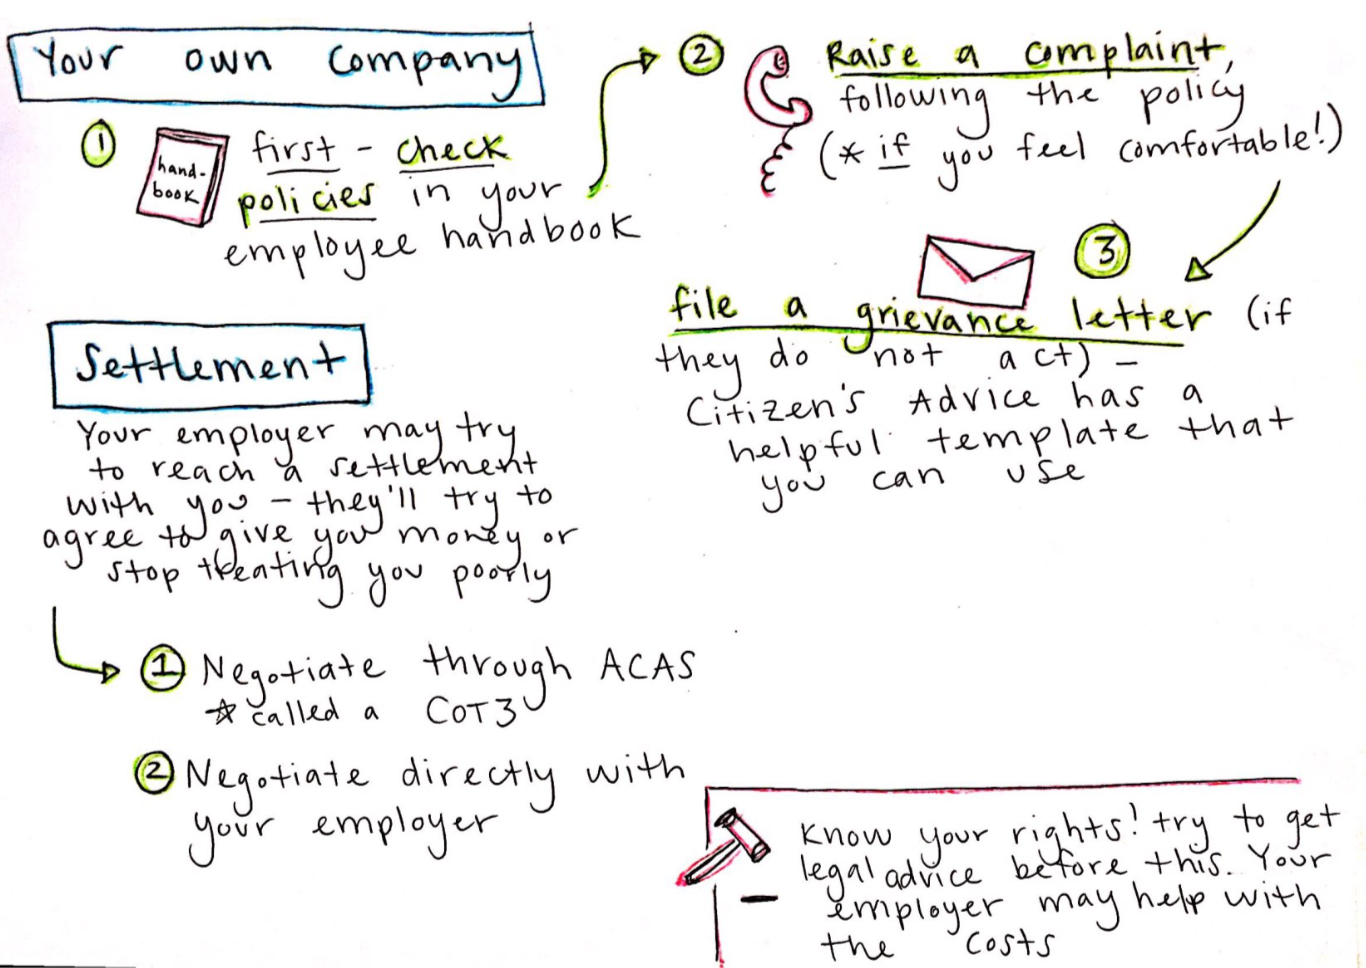 Your own company
1
hand-
book
first - check
policies in your
employee handbook
2
Raise a complaint,
following the policy
(* if you feel comfortable!)
3
file a grievance letter (if
they do not act) -
Citizen's Advice has a
helpful template that
you can use
Settlement
Your employer may try
to reach a settlement
with you - they'll try to
agree to give you money or
stop treating you poorly
1 Negotiate through ACAS
* called a COT3
2 Negotiate directly with
your employer
Know your rights! try to get
legal advice before this. Your
employer may help with
the costs